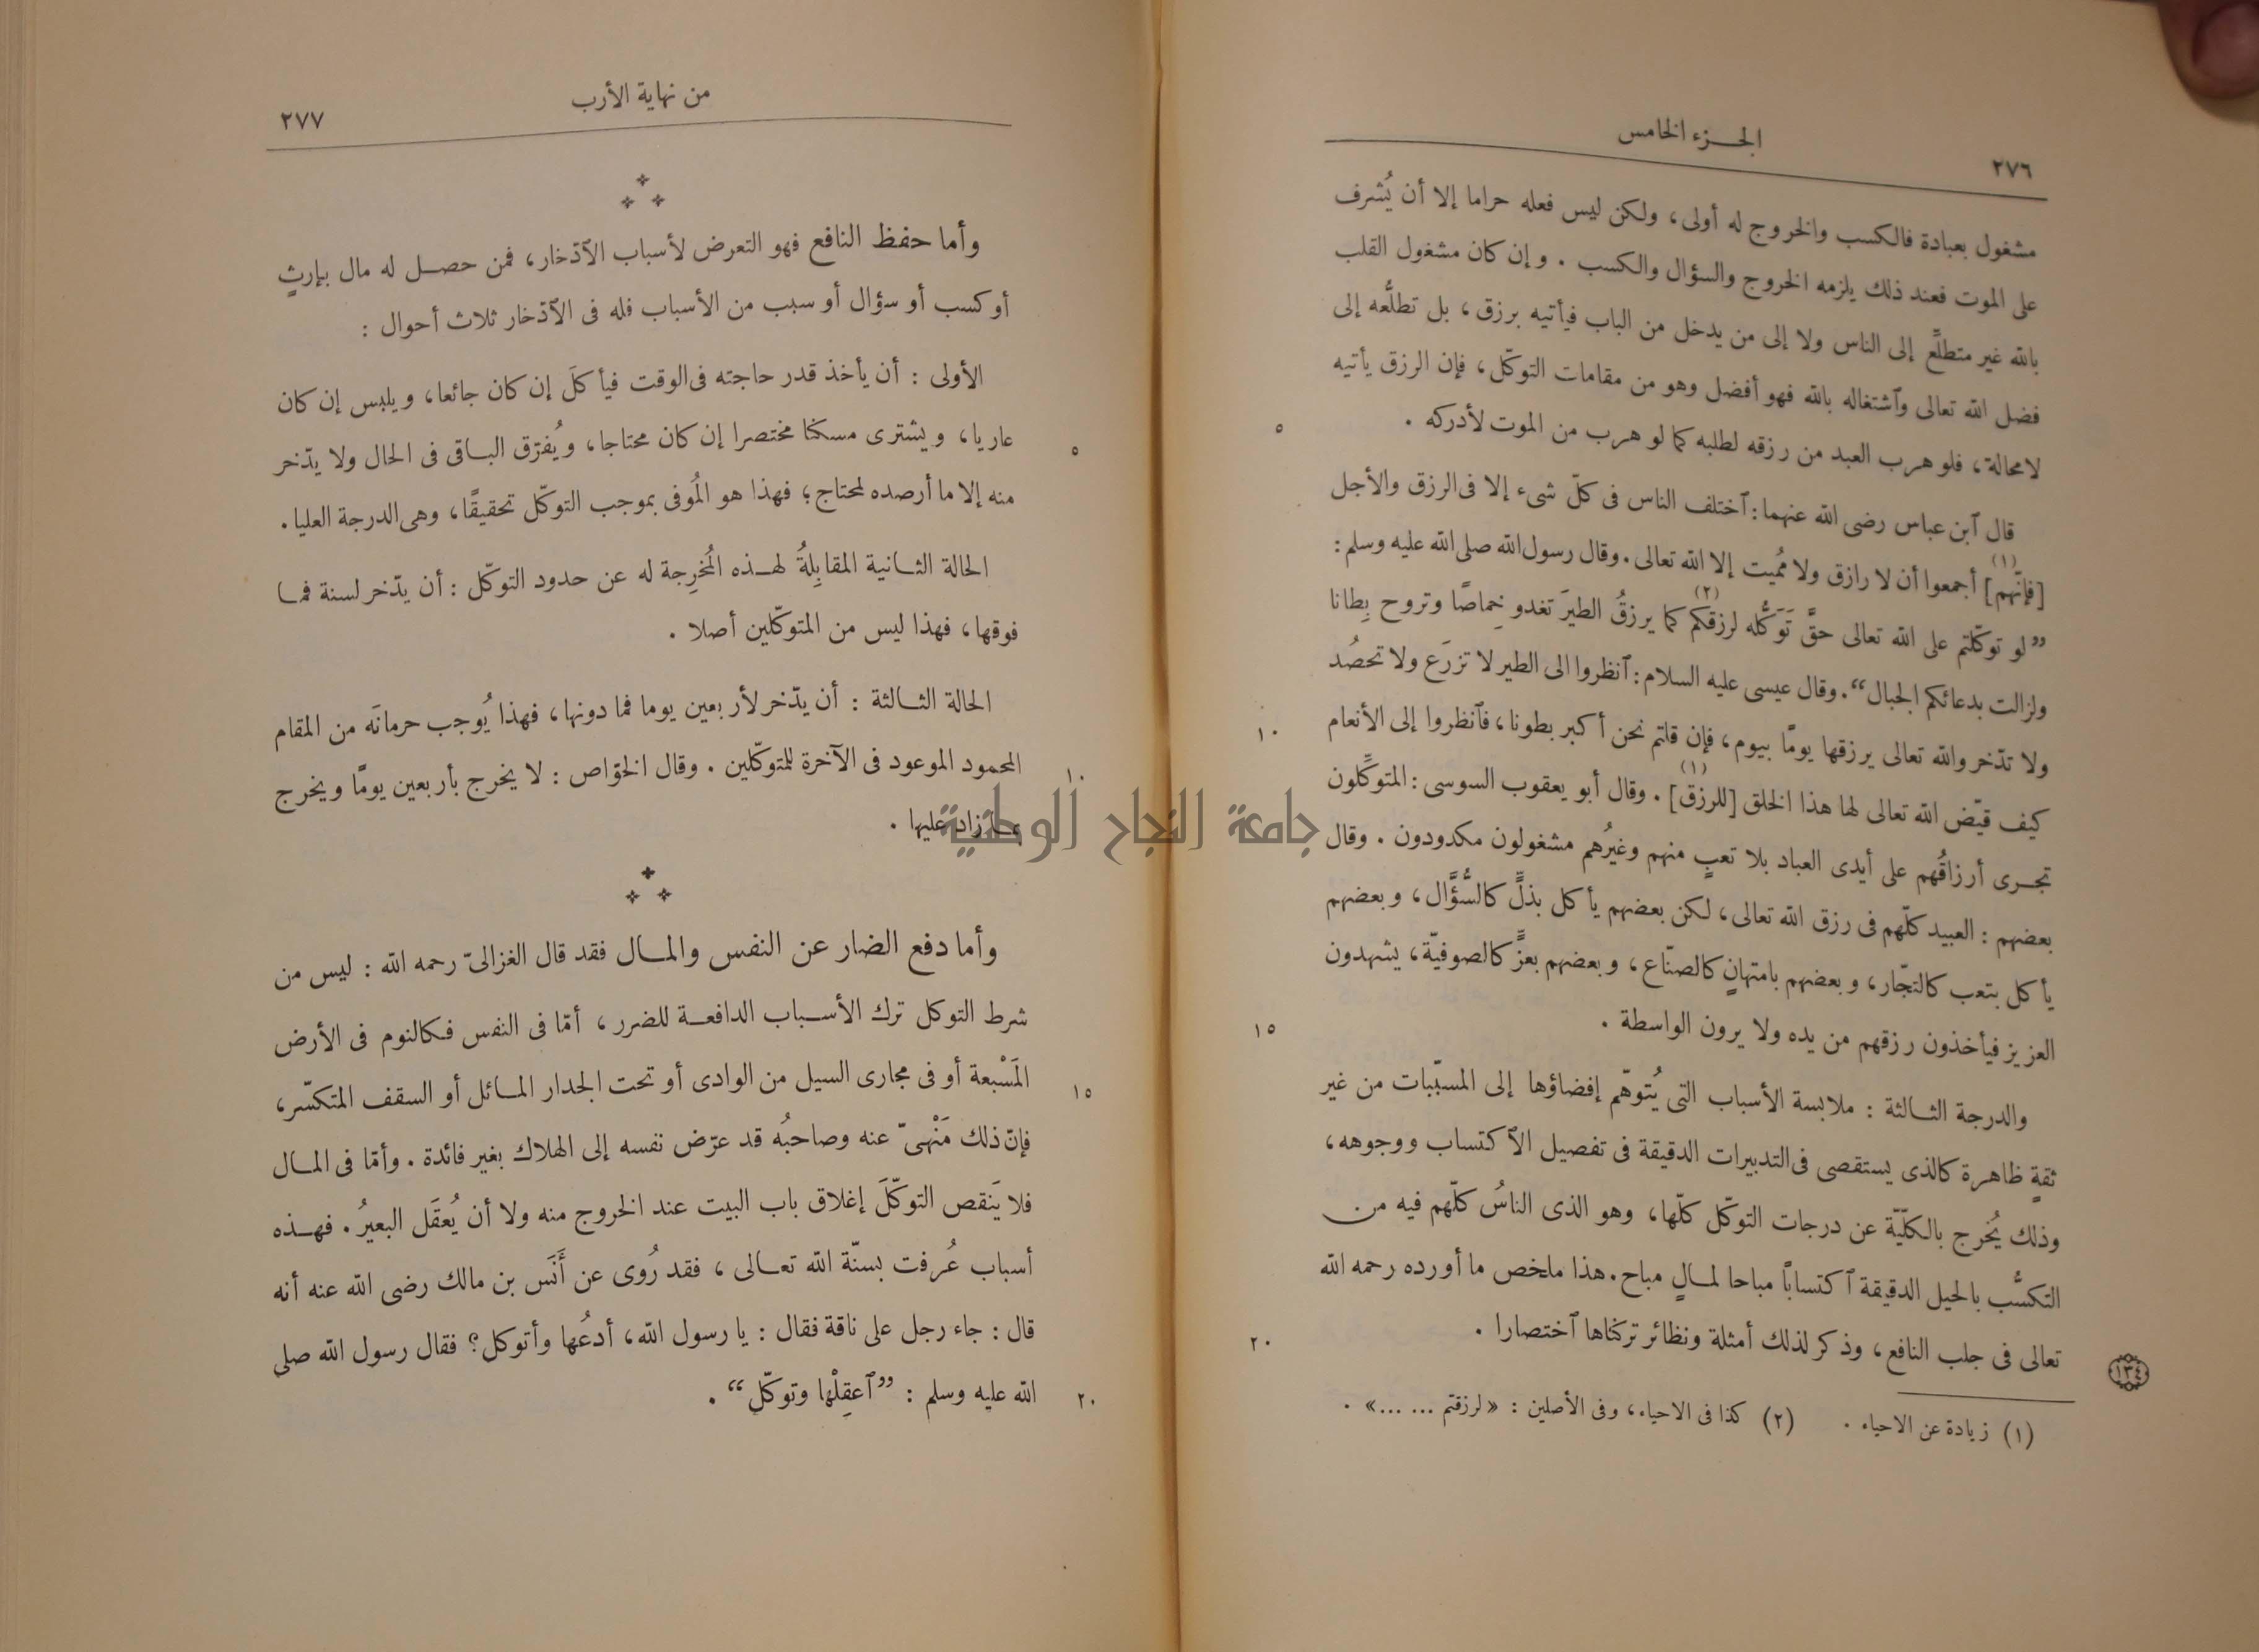 الجزء الخامس
٢٧٦
مشغول بعبادة فالكسب والخروج له أولى، ولكن ليس فعله حراما إلا أن يُشرف
على الموت فعند ذلك يلزمه الخروج والسؤال والكسب . وإن كان مشغول القلب
بالله غير متطلِّع إلى الناس ولا إلى من يدخل من الباب فيأتيه برزق، بل تطلُّعه إلى
فضل الله تعالى وٱشتغاله بالله فهو أفضل وهو من مقامات التوكّل، فإن الرزق يأتيه
لا محالة، فلو هرب العبد من رزقه لطلبه كما لو هرب من الموت لأدركه .
٥
قال ٱبن عباس رضى الله عنهما: ٱختلف الناس فى كلّ شىء إلا فى الرزق والأجل
[فإنّهم](١) أجمعوا أن لا رازق ولا مُميت إلا الله تعالى. وقال رسول الله صلى الله عليه وسلم:
”لو توكّلتم على الله تعالى حقَّ تَوَكُّله لرزقكم(٢) كما يرزقُ الطيرَ تغدو خِماصًا وتروح بِطانا
ولزالت بدعائكم الجبال“. وقال عيسى عليه السلام: ٱنظروا الى الطير لا تزرَع ولا تحصُد
ولا تدّخر والله تعالى يرزقها يومًا بيوم، فإن قلتم نحن أكبر بطونا، فٱنظروا إلى الأنعام
١٠
كيف قيّض الله تعالى لها هذا الخلق [للرزق](١) . وقال أبو يعقوب السوسى: المتوكِّلون
تجرى أرزاقُهم على أيدى العباد بلا تعبٍ منهم وغيرُهم مشغولون مكدودون . وقال
بعضهم : العبيد كلّهم فى رزق الله تعالى، لكن بعضهم يأكل بذلٍّ كالسُّؤَّال، وبعضهم
يأكل بتعب كالتجّار، وبعضهم بامتهانٍ كالصنّاع، وبعضهم بعزٍّ كالصوفيّة، يشهدون
العزيز فيأخذون رزقهم من يده ولا يرون الواسطة .
١٥
والدرجة الثالثة : ملابسة الأسباب التى يُتوهّم إفضاؤها إلى المسبّبات من غير
ثقةٍ ظاهرة كالذى يستقصى فى التدبيرات الدقيقة فى تفصيل الٱكتساب ووجوهه،
وذلك يُخرج بالكلّيّة عن درجات التوكّل كلّها، وهو الذى الناسُ كلّهم فيه من
التكسُّب بالحيل الدقيقة ٱكتسابًا مباحا لمالٍ مباح. هذا ملخص ما أورده رحمه الله
تعالى فى جلب النافع، وذكر لذلك أمثلة ونظائر تركناها ٱختصارا .
٢٠
١٣٤
(١) زيادة عن الاحياء . (٢) كذا فى الاحياء، وفى الأصلين : «لرزقتم ... ...» .
من نهاية الأرب
٢٧٧
وأما حفظ النافع فهو التعرض لأسباب الٱدّخار، فمن حصل له مال بإرثٍ
أو كسب أو سؤال أو سبب من الأسباب فله فى الٱدّخار ثلاث أحوال :
الأولى : أن يأخذ قدر حاجته فى الوقت فيأكلَ إن كان جائعا، ويلبس إن كان
عاريا، ويشترى مسكنا مختصرا إن كان محتاجا، ويُفرّق الباقى فى الحال ولا يدّخر
٥
منه إلا ما أرصده لمحتاج؛ فهذا هو المُوفى بموجب التوكّل تحقيقًا، وهى الدرجة العليا.
الحالة الثانية المقابِلةُ لهذه المُخرِجة له عن حدود التوكّل : أن يدّخر لسنة فما
فوقها، فهذا ليس من المتوكّلين أصلا .
الحالة الثالثة : أن يدّخر لأربعين يوما فما دونها، فهذا يُوجب حرمانَه من المقام
المحمود الموعود فى الآخرة للمتوكّلين . وقال الخوّاص : لا يخرج بأربعين يومًا ويخرج
١٠
بما زاد عليها .
جامعة النجاح الوطنية
وأما دفع الضار عن النفس والمال فقد قال الغزالىّ رحمه الله : ليس من
شرط التوكل ترك الأسباب الدافعة للضرر، أمّا فى النفس فكالنوم فى الأرض
المَسْبعة أو فى مجارى السيل من الوادى أو تحت الجدار المائل أو السقف المتكسّر،
١٥
فإنّ ذلك مَنْهىّ عنه وصاحبُه قد عرّض نفسه إلى الهلاك بغير فائدة . وأمّا فى المال
فلا يَنقص التوكّلَ إغلاق باب البيت عند الخروج منه ولا أن يُعقَل البعيرُ . فهذه
أسباب عُرفت بسنّة الله تعالى، فقد رُوى عن أَنَس بن مالك رضى الله عنه أنه
قال : جاء رجل على ناقة فقال : يا رسول الله، أدعُها وأتوكل؟ فقال رسول الله صلى
الله عليه وسلم : ”ٱعقِلْها وتوكّل“ .
٢٠